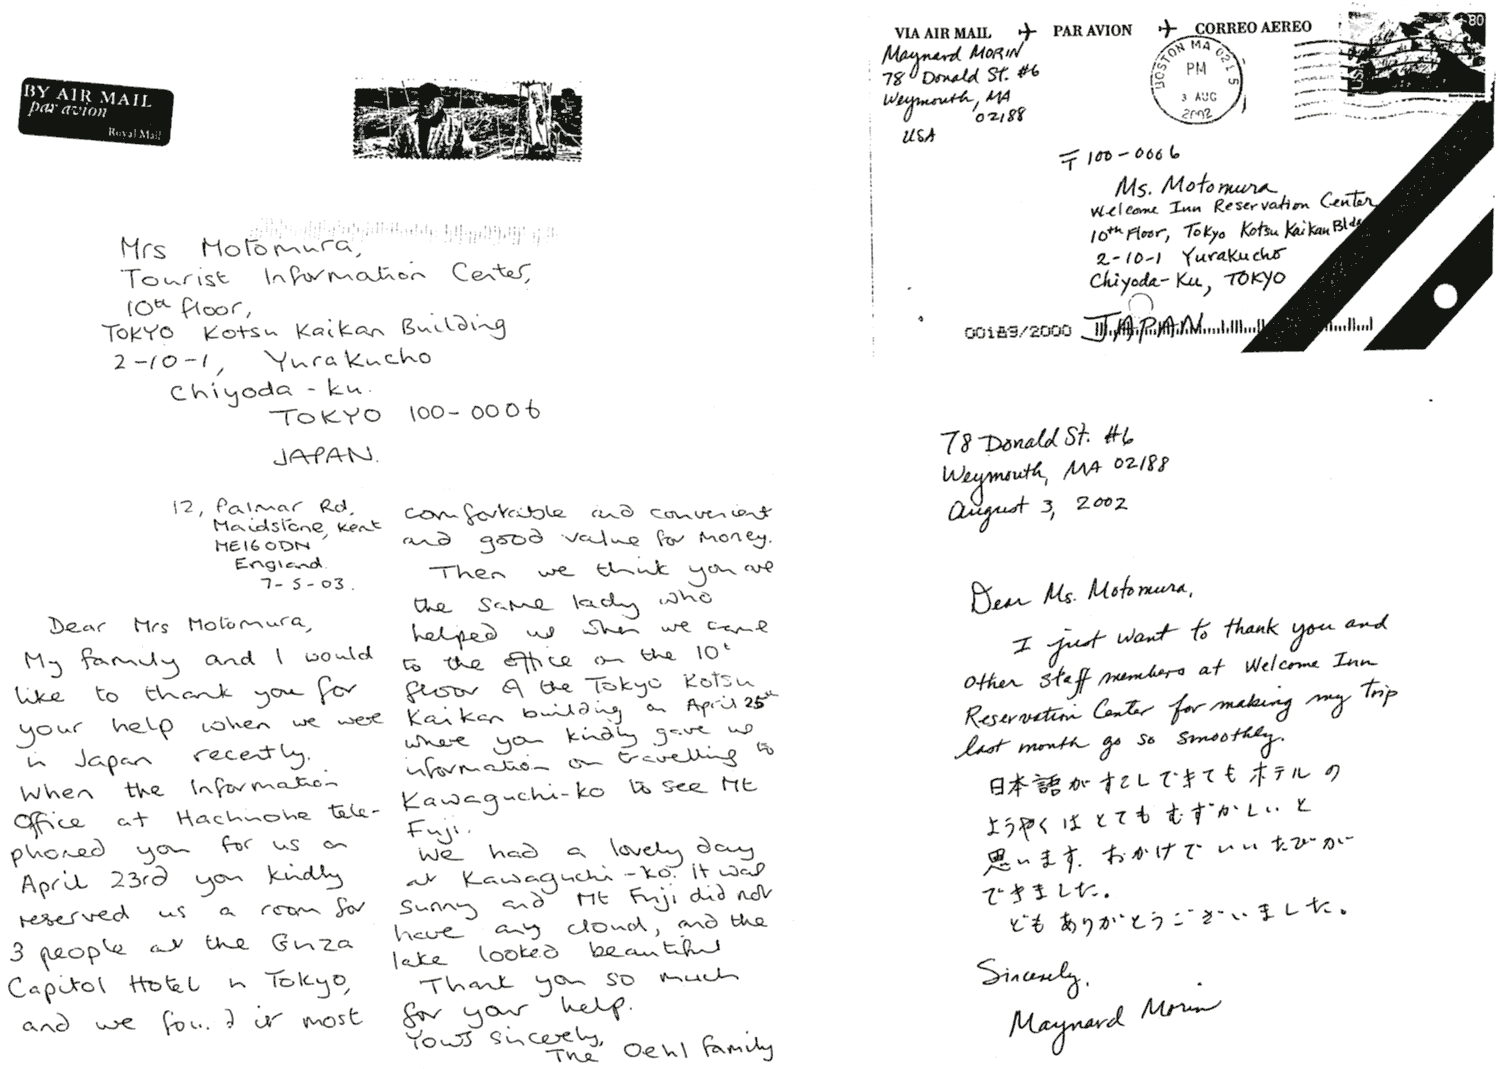 BY AIR MAIL
par avion
Royal Mail
Mrs Motomura,
Tourist Information Center,
10th floor,
TOKYO Kotsu Kaikan Building
2-10-1, Yurakucho
Chiyoda-ku.
TOKYO 100-0006
JAPAN.
12, Palmar Rd,
Maidstone, Kent
ME16 0DN
England.
7-5-03.
Dear Mrs Motomura,
My family and I would
like to thank you for
your help when we were
in Japan recently.
When the Information
Office at Hachinohe tele-
phoned you for us on
April 23rd you kindly
reserved us a room for
3 people at the Ginza
Capitol Hotel in Tokyo,
and we found it most
comfortable and convenient
and good value for money.
Then we think you are
the same lady who
helped us when we came
to the office on the 10th
floor of the Tokyo Kotsu
Kaikan building on April 25th
where you kindly gave us
information on travelling to
Kawaguchi-ko to see Mt
Fuji.
We had a lovely day
at Kawaguchi-ko. it was
sunny and Mt Fuji did not
have any cloud, and the
lake looked beautiful
Thank you so much
for your help.
Yours sincerely,
The Oehl family
VIA AIR MAIL PAR AVION CORREO AEREO
Maynard MORIN
78 Donald St. #6
Weymouth, MA
02188
USA
BOSTON MA 021 5
PM
3 AUG
2002
USA
80
〒100-0006
Ms. Motomura
Welcome Inn Reservation Center
10th Floor, Tokyo Kotsu Kaikan Bldg
2-10-1 Yurakucho
Chiyoda-Ku, TOKYO
JAPAN
00189/2000
78 Donald St. #6
Weymouth, MA 02188
August 3, 2002
Dear Ms. Motomura,
I just want to thank you and
other staff members at Welcome Inn
Reservation Center for making my trip
last month go so smoothly.
日本語がすこしできてもホテルの
ようやくはとてもむずかしいと
思います。おかげでいいたびが
できました。
どもありがとうございました。
Sincerely,
Maynard Morin